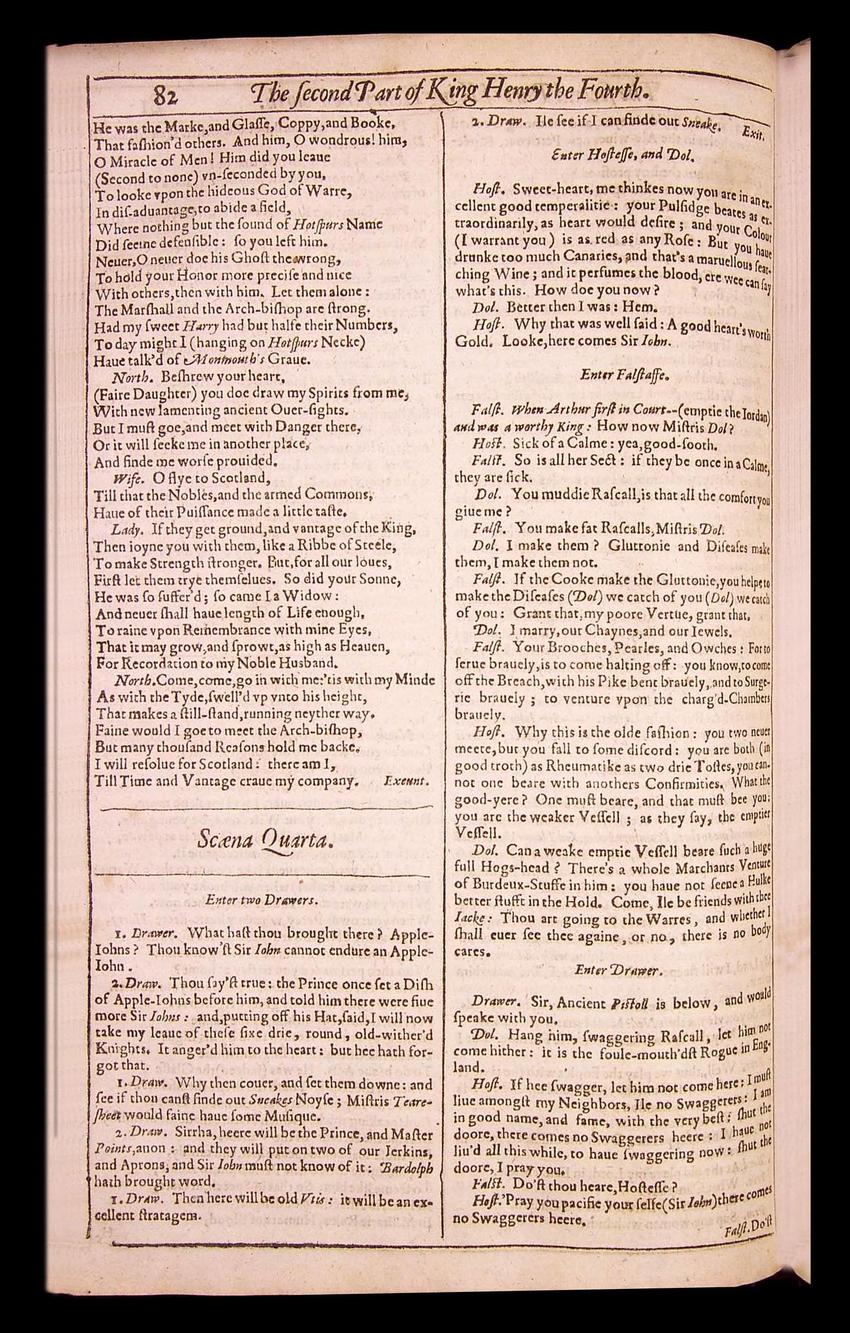 82
The ſecond Part of King Henry the Fourth.
He was the Marke,and Glaſſe, Coppy,and Booke,
That faſhion'd others. And him, O wondrous! him,
O Miracle of Men! Him did you leaue
(Second to none) vn-ſeconded by you,
To looke vpon the hideous God of Warre,
In diſ-aduantage,to abide a field,
Where nothing but the ſound of Hotſpurs Name
Did ſeeme defenſible: ſo you left him.
Neuer,O neuer doe his Ghoſt the wrong,
To hold your Honor more preciſe and nice
With others,then with him. Let them alone:
The Marſhall and the Arch-biſhop are ſtrong.
Had my ſweet Harry had but halfe their Numbers,
To day might I (hanging on Hotſpurs Necke)
Haue talk'd of Monmouth's Graue.
North. Beſhrew your heart,
(Faire Daughter) you doe draw my Spirits from me,
With new lamenting ancient Ouer-ſights.
But I muſt goe,and meet with Danger there,
Or it will ſeeke me in another place,
And finde me worſe prouided.
Wife. O flye to Scotland,
Till that the Nobles,and the armed Commons,
Haue of their Puiſſance made a little taſte.
Lady. If they get ground,and vantage of the King,
Then ioyne you with them, like a Ribbe of Steele,
To make Strength ſtronger. But,for all our loues,
Firſt let them trye themſelues. So did your Sonne,
He was ſo ſuffer'd; ſo came I a Widow:
And neuer ſhall haue length of Life enough,
To raine vpon Remembrance with mine Eyes,
That it may grow,and ſprowt,as high as Heauen,
For Recordation to my Noble Husband.
North.Come,come,go in with me:'tis with my Minde
As with the Tyde,ſwell'd vp vnto his height,
That makes a ſtill-ſtand,running neyther way.
Faine would I goe to meet the Arch-biſhop,
But many thouſand Reaſons hold me backe.
I will reſolue for Scotland: there am I,
Till Time and Vantage craue my company. Exeunt.
Scæna Quarta.
Enter two Drawers.
1. Drawer. What haſt thou brought there? Apple-
Iohns? Thou know'ſt Sir Iohn cannot endure an Apple-
Iohn.
2. Draw. Thou ſay'ſt true: the Prince once ſet a Diſh
of Apple-Iohns before him, and told him there were fiue
more Sir Iohns: and,putting off his Hat,ſaid,I will now
take my leaue of theſe ſixe drie, round, old-wither'd
Knights. It anger'd him to the heart: but hee hath for-
got that.
1. Draw. Why then couer, and ſet them downe: and
ſee if thou canſt finde out Sneakes Noyſe; Miſtris Teare-
ſheet would faine haue ſome Muſique.
2. Draw. Sirrha, heere will be the Prince, and Maſter
Points,anon: and they will put on two of our Ierkins,
and Aprons, and Sir Iohn muſt not know of it: Bardolph
hath brought word.
1. Draw. Then here will be old Vtis: it will be an ex-
cellent ſtratagem.
2. Draw. Ile ſee if I can finde out Sneake. Exit.
Enter Hoſteſſe, and Dol.
Hoſt. Sweet-heart, me thinkes now you are in an ex-
cellent good temperalitie: your Pulſidge beates as ex-
traordinarily, as heart would deſire; and your Colour
(I warrant you) is as red as any Roſe: But you haue
drunke too much Canaries, and that's a maruellous ſear-
ching Wine; and it perfumes the blood, ere wee can ſay
what's this. How doe you now?
Dol. Better then I was: Hem.
Hoſt. Why that was well ſaid: A good heart's worth
Gold. Looke,here comes Sir Iohn.
Enter Falſtaffe.
Falſt. When Arthur firſt in Court--(emptie the Iordan)
and was a worthy King: How now Miſtris Dol?
Hoſt. Sick of a Calme: yea,good-ſooth.
Falſt. So is all her Sect: if they be once in a Calme,
they are ſick.
Dol. You muddie Raſcall,is that all the comfort you
giue me?
Falſt. You make fat Raſcalls,Miſtris Dol.
Dol. I make them? Gluttonie and Diſeaſes make
them, I make them not.
Falſt. If the Cooke make the Gluttonie,you helpe to
make the Diſeaſes (Dol) we catch of you (Dol) we catch
of you: Grant that,my poore Vertue, grant that.
Dol. I marry,our Chaynes,and our Iewels.
Falſt. Your Brooches, Pearles, and Owches: For to
ſerue brauely,is to come halting off: you know,to come
off the Breach,with his Pike bent brauely,and to Surge-
rie brauely; to venture vpon the charg'd-Chambers
brauely.
Hoſt. Why this is the olde faſhion: you two neuer
meete,but you fall to ſome diſcord: you are both (in
good troth) as Rheumatike as two drie Toſtes, you can-
not one beare with anothers Confirmities. What the
good-yere? One muſt beare, and that muſt bee you:
you are the weaker Veſſell; as they ſay, the emptier
Veſſell.
Dol. Can a weake emptie Veſſell beare ſuch a huge
full Hogs-head? There's a whole Marchants Venture
of Burdeux-Stuffe in him: you haue not ſeene a Hulke
better ſtufft in the Hold. Come, Ile be friends with thee
Iacke: Thou art going to the Warres, and whether I
ſhall euer ſee thee againe, or no, there is no body
cares.
Enter Drawer.
Drawer. Sir, Ancient Piſtoll is below, and would
ſpeake with you.
Dol. Hang him, ſwaggering Raſcall, let him not
come hither: it is the foule-mouth'dſt Rogue in Eng-
land.
Hoſt. If hee ſwagger, let him not come here: I muſt
liue amongſt my Neighbors, Ile no Swaggerers: I am
in good name, and fame, with the very beſt: ſhut the
doore, there comes no Swaggerers heere: I haue not
liu'd all this while, to haue ſwaggering now: ſhut the
doore, I pray you.
Falſt. Do'ſt thou heare,Hoſteſſe?
Hoſt.'Pray you pacifie your ſelfe(Sir Iohn)there comes
no Swaggerers heere.
Falſt. Do'ſt